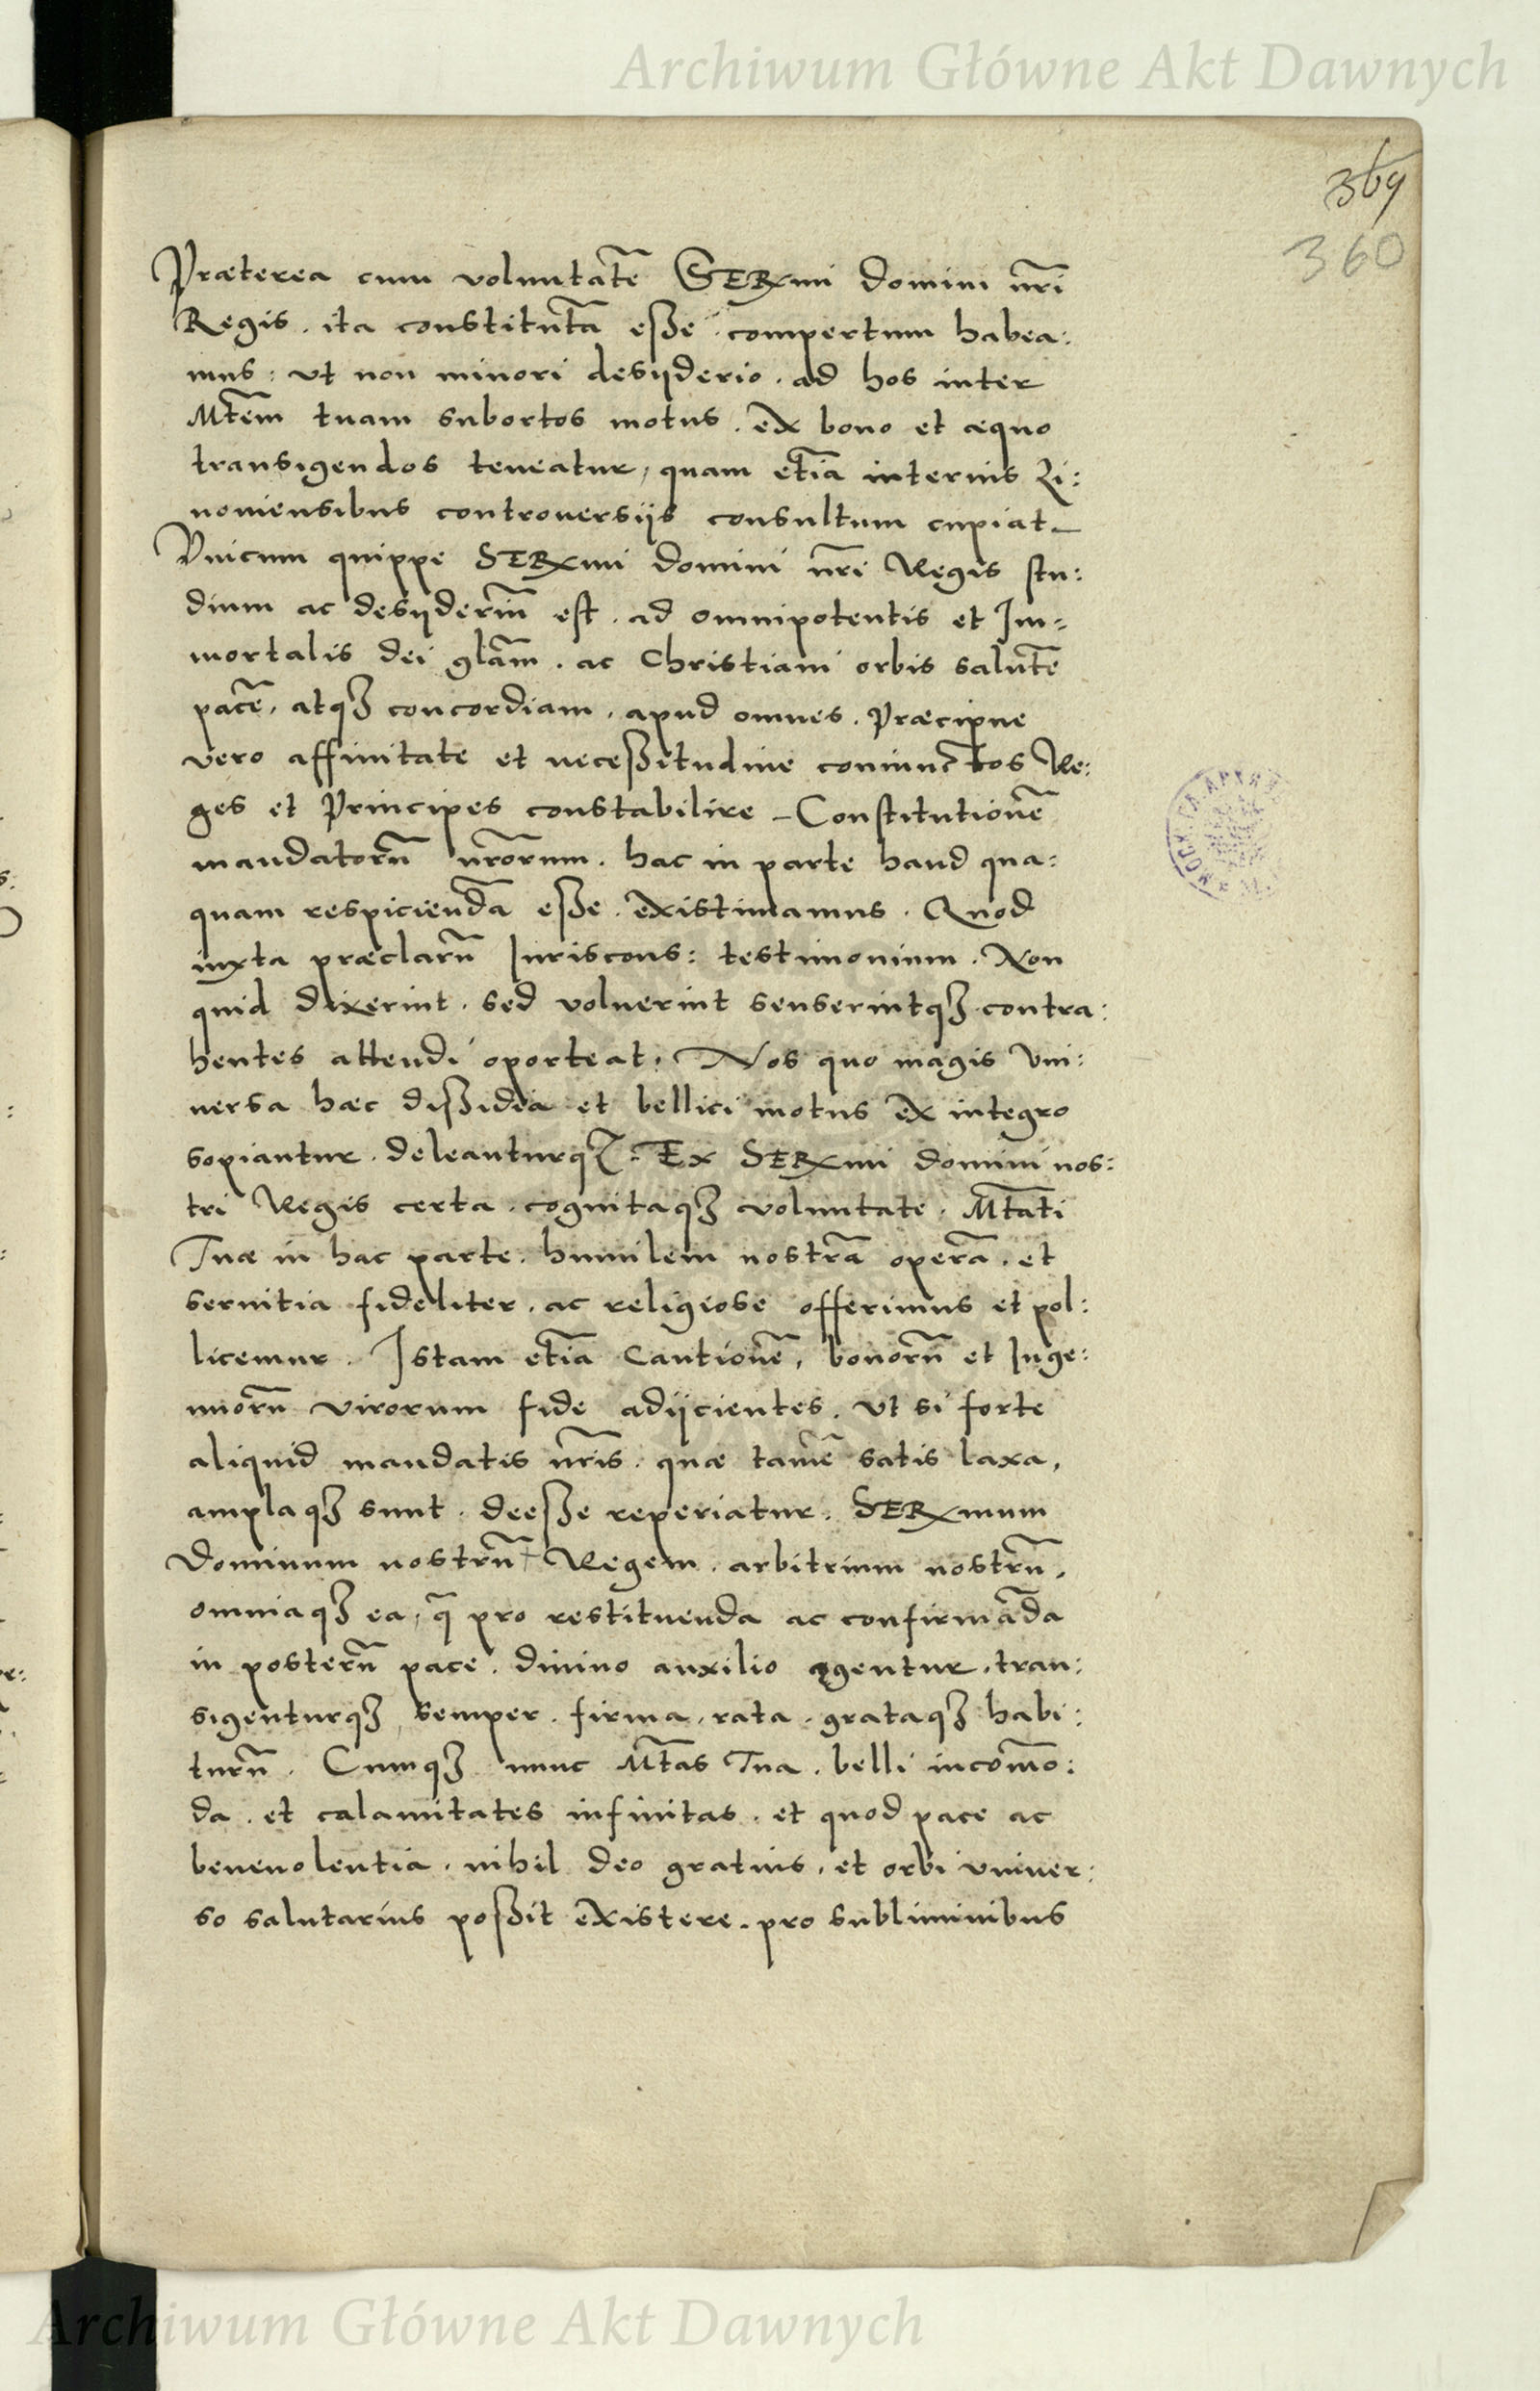 Archiwum Główne Akt Dawnych
369
360
Præterea cum voluntatē SERmi domini nr̄i
Regis . ita constitutā eſse compertum habea:
mus : vt non minori desyderio . ad hos inter
Mtēm tuam subortos motus . ex bono et æquo
transigendos teneatur, quam etiā internis Li:
uoniensibus controuersijs consultum cupiat_
Vnicum quippe SERmi domini nr̄i Regis stu:
dium ac desyderiū est . ad omnipotentis et Im=
mortalis dei glām . ac Christiani orbis salutē
pacē, atq₃ concordiam . apud omnes . Præcipue
vero affinitate et neceſsitudine coniunctos Re:
ges et Principes constabilire _ Constitutionē
mandatorū nr̄orum . hac in parte haud qua:
quam respiciendā eſse . existimamus . Quod
iuxta præclarū Iuriscons: testimonium . Non
quid dixerint . sed voluerint senserintq₃ contra:
hentes attendi oporteat. Nos quo magis vni:
uersa hæc diſsidia et bellici motus ex integro
sopiantur . deleanturq₃. Ex SERmi domini nos:
tri Regis certa . cognitaq₃ voluntate . Mtāti
Tuæ in hac parte . humilem nostrā operā . et
seruitia fideliter . ac religiose offerimus et pol:
licemur . Istam etiā Cautionē, bonorū et Inge:
nuorū virorum fide adijcientes . Vt si forte
aliquid mandatis nr̄is . quæ tamē satis laxa,
amplaq₃ sunt . deeſse reperiatur . SERmum
Dominum nostrū Regem . arbitrium nostrū .
omniaq₃ ea, q̄ pro restituenda ac confirmāda
in posterū pace . diuino auxilio agentur . tran:
sigenturq₃ semper . firma . rata . grataq₃ habi:
turū . Cumq₃ nunc Mtās Tua . belli incōmo:
da . et calamitates infinitas . et quod pace ac
beneuolentia . nihil deo gratius . et orbi vniuer:
so salutarius poſsit existere . pro subliminibus
Archiwum Główne Akt Dawnych